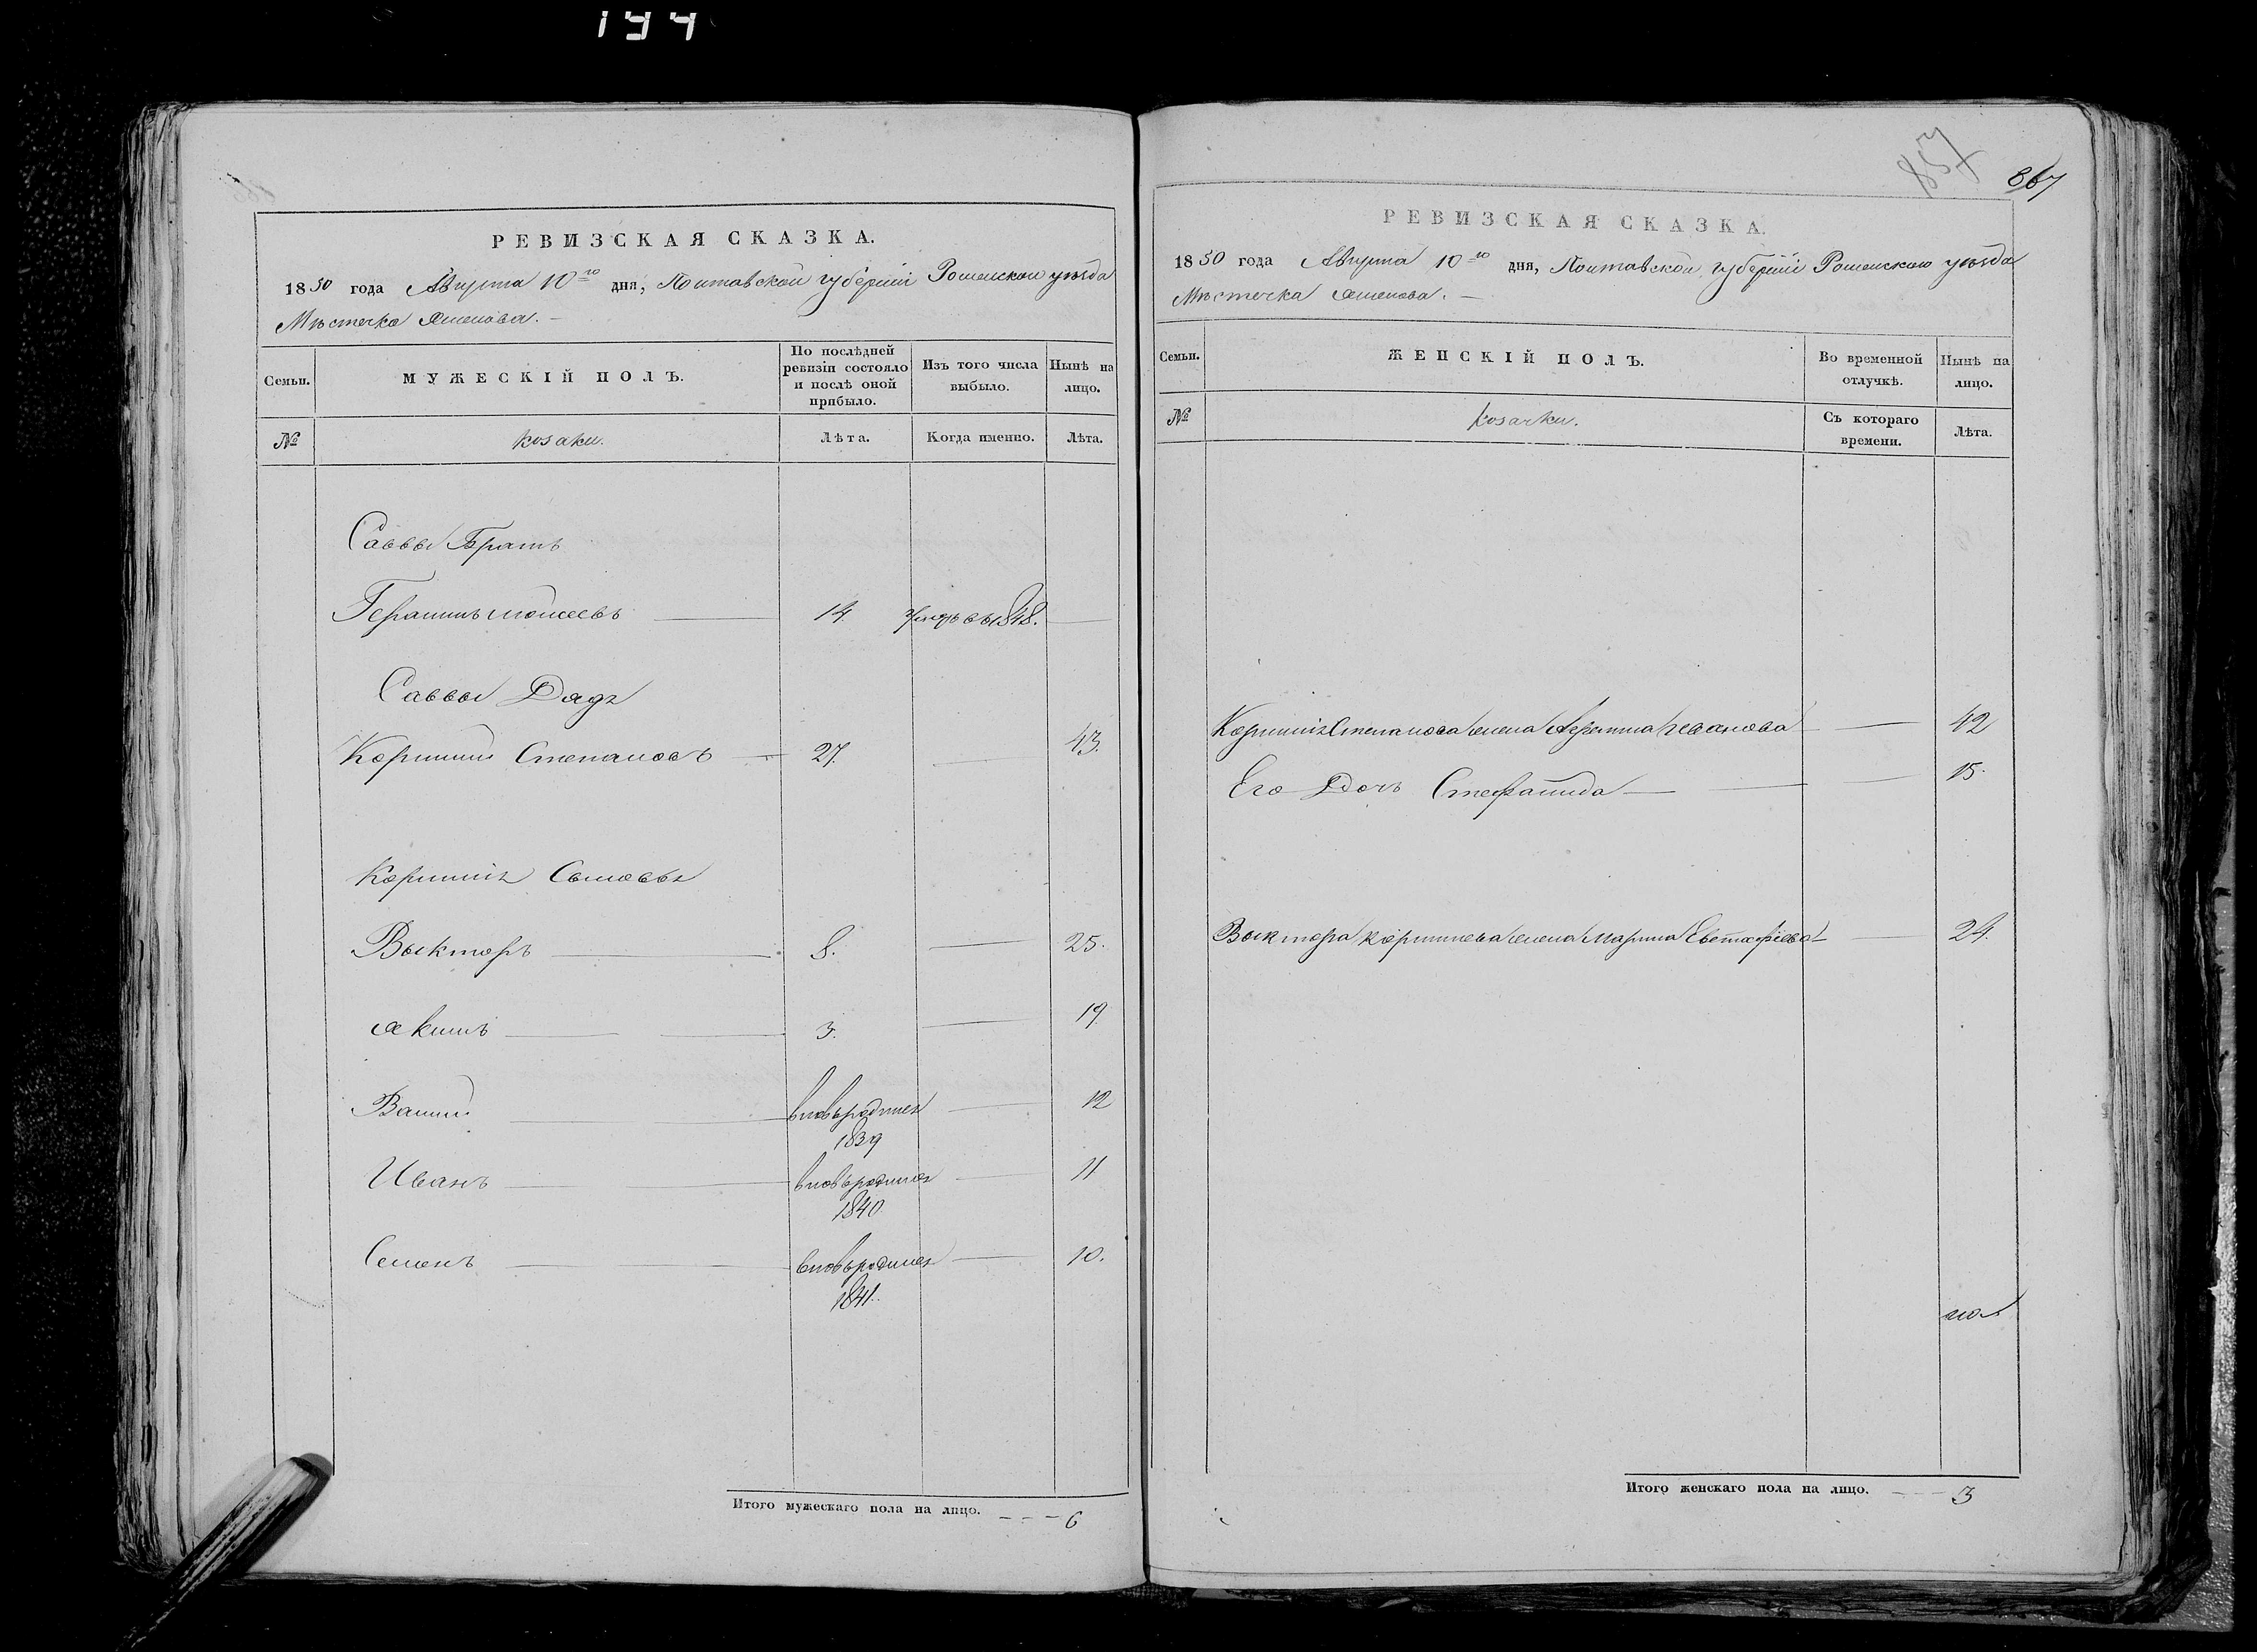 РЕВИЗСКАЯ СКАЗКА.
1850 года Августа 10го дня, Полтавской губерніи Роменскаго уѣзда
Мѣстечка
Семьи. МУЖЕСКІЙ ПОЛЪ. По послѣдней ревизіи состояло и послѣ оной прибыло. Изъ того числа выбыло. Нынѣ на лицо.
№ козаки. Лѣта. Когда именно. Лѣта.
Саввы Братъ
Герасимъ Моисеевъ 14. 1848.
Саввы Дядя
Корнилій Степановъ 27. 43.
Корнилія Сыновья
Выкторъ 8. 25.
Якимъ 3. 19
вновьродился 12
1839
Иванъ вновьродился 11
1840
Семенъ вновьродился 10.
1841.
Итого мужескаго пола на лицо. 6
857
867
РЕВИЗСКАЯ СКАЗКА.
1850 года Августа 10го дня, Полтавской губерніи Роменскаго уѣзда
Мѣстечка
Семьи. ЖЕНСКІЙ ПОЛЪ. Во временной отлучкѣ. Нынѣ на лицо.
№ козачки. Съ котораго времени. Лѣта.
Корнилія Степанова жена Иванова 42
Его Дочь Стефанида 15.
Выктора Корнилиева жена Марина Евстафіева 24.
Итого женскаго пола на лицо. 3